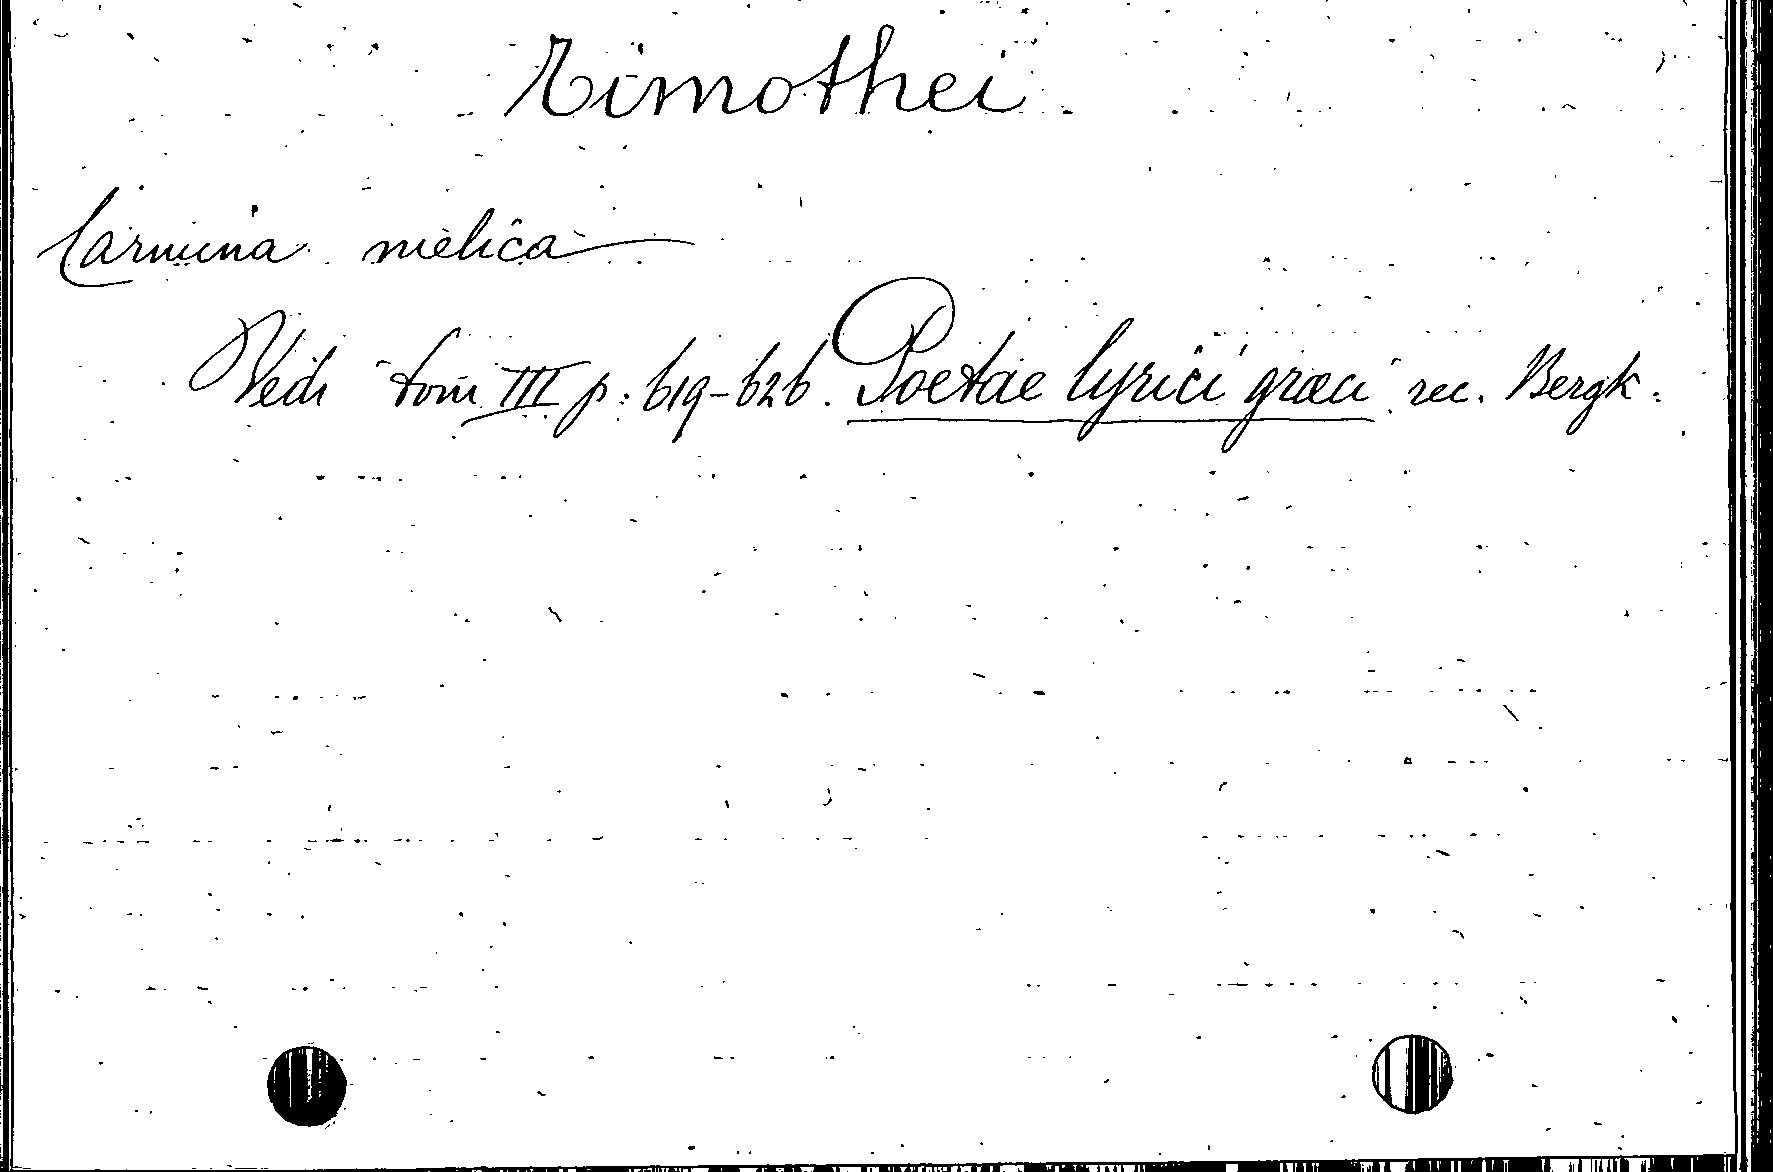 Timothei
Carmina melica
Vedi tom III p. 619-626. Poetae lyrici græci rec. Bergk.